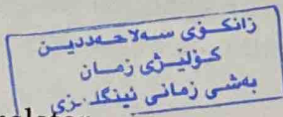 زانکۆی سەلاحەددین
کۆلێژی زمان
بەشی زمانی ئینگلیزی